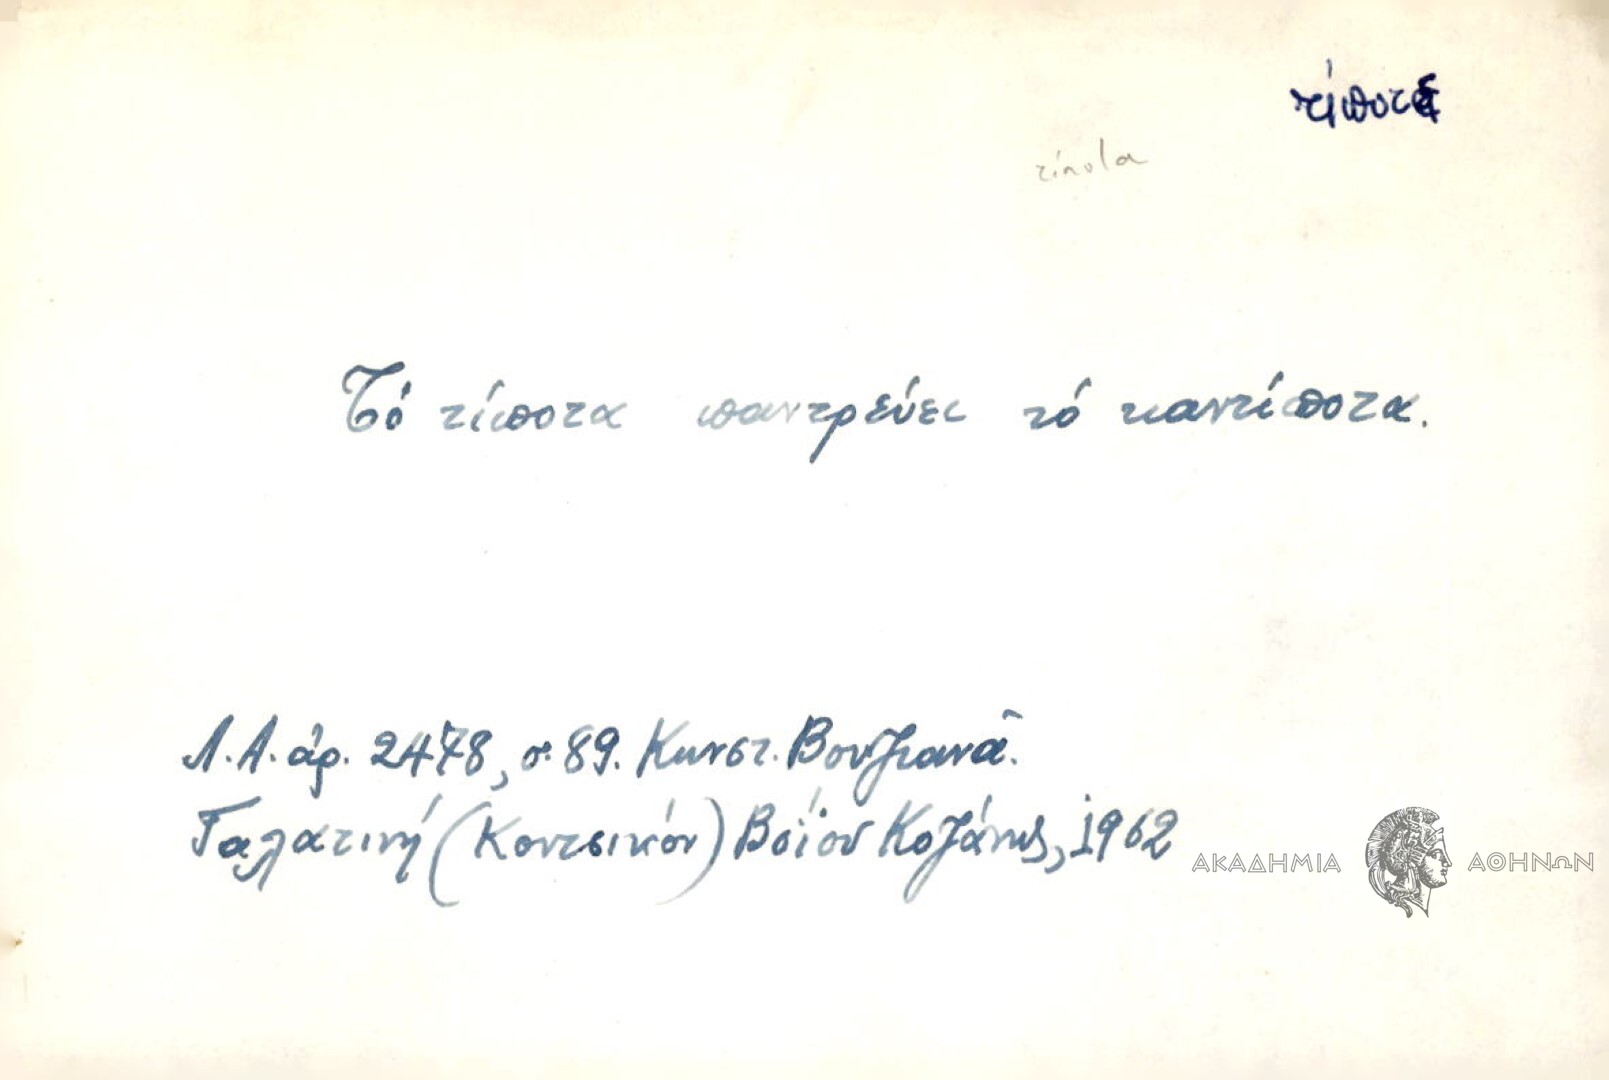 τίποτα
τίποτα
Τό τίποτα παντρεύει τό καντίποτα.
Λ.Α. ἀρ. 2478, σ. 89. Κωνστ. Βουζιανᾶ.
Γαλατινή (Κοντσικόν) Βοΐου Κοζάνης, 1962
ΑΚΑΔΗΜΙΑ ΑΘΗΝΩΝ